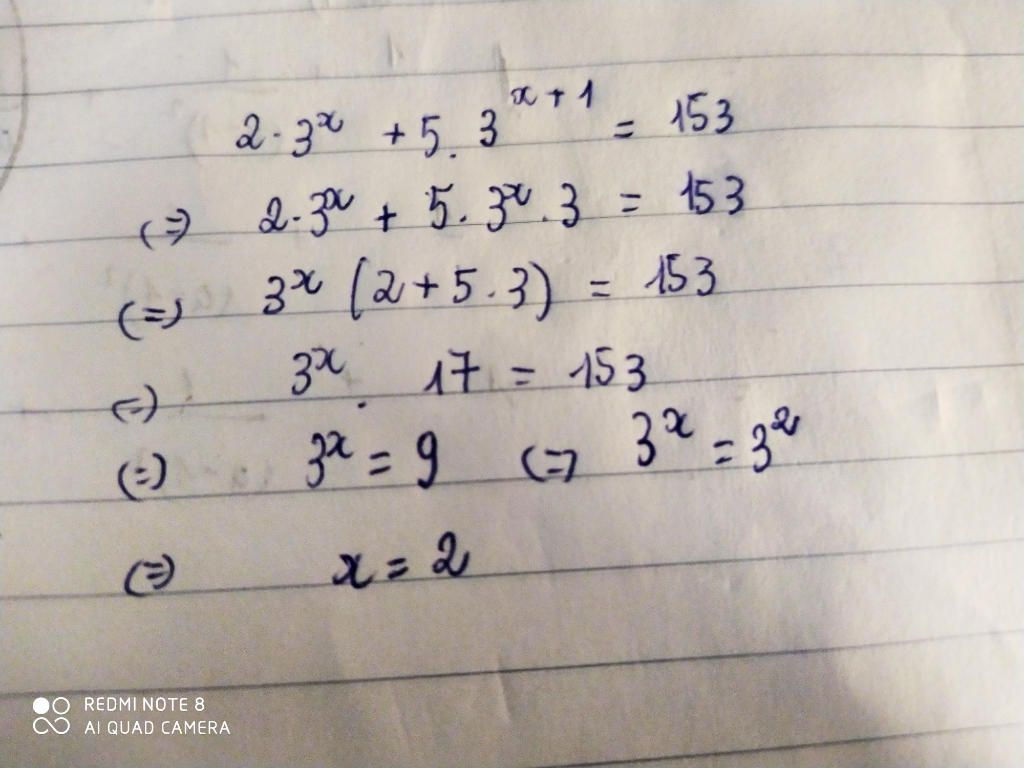 2 · 3^x + 5 . 3^(x+1) = 153
(=) 2 · 3^x + 5 · 3^x . 3 = 153
(=) 3^x (2 + 5 . 3) = 153
(=) 3^x . 17 = 153
(=) 3^x = 9 (=) 3^x = 3^2
(=) x = 2
REDMI NOTE 8
AI QUAD CAMERA